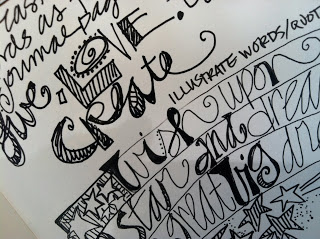 as
journal pag
Live. LOVE.
Create
ILLUSTRATE WORDS/QUOT
Wish upon
star and drea
great big dre